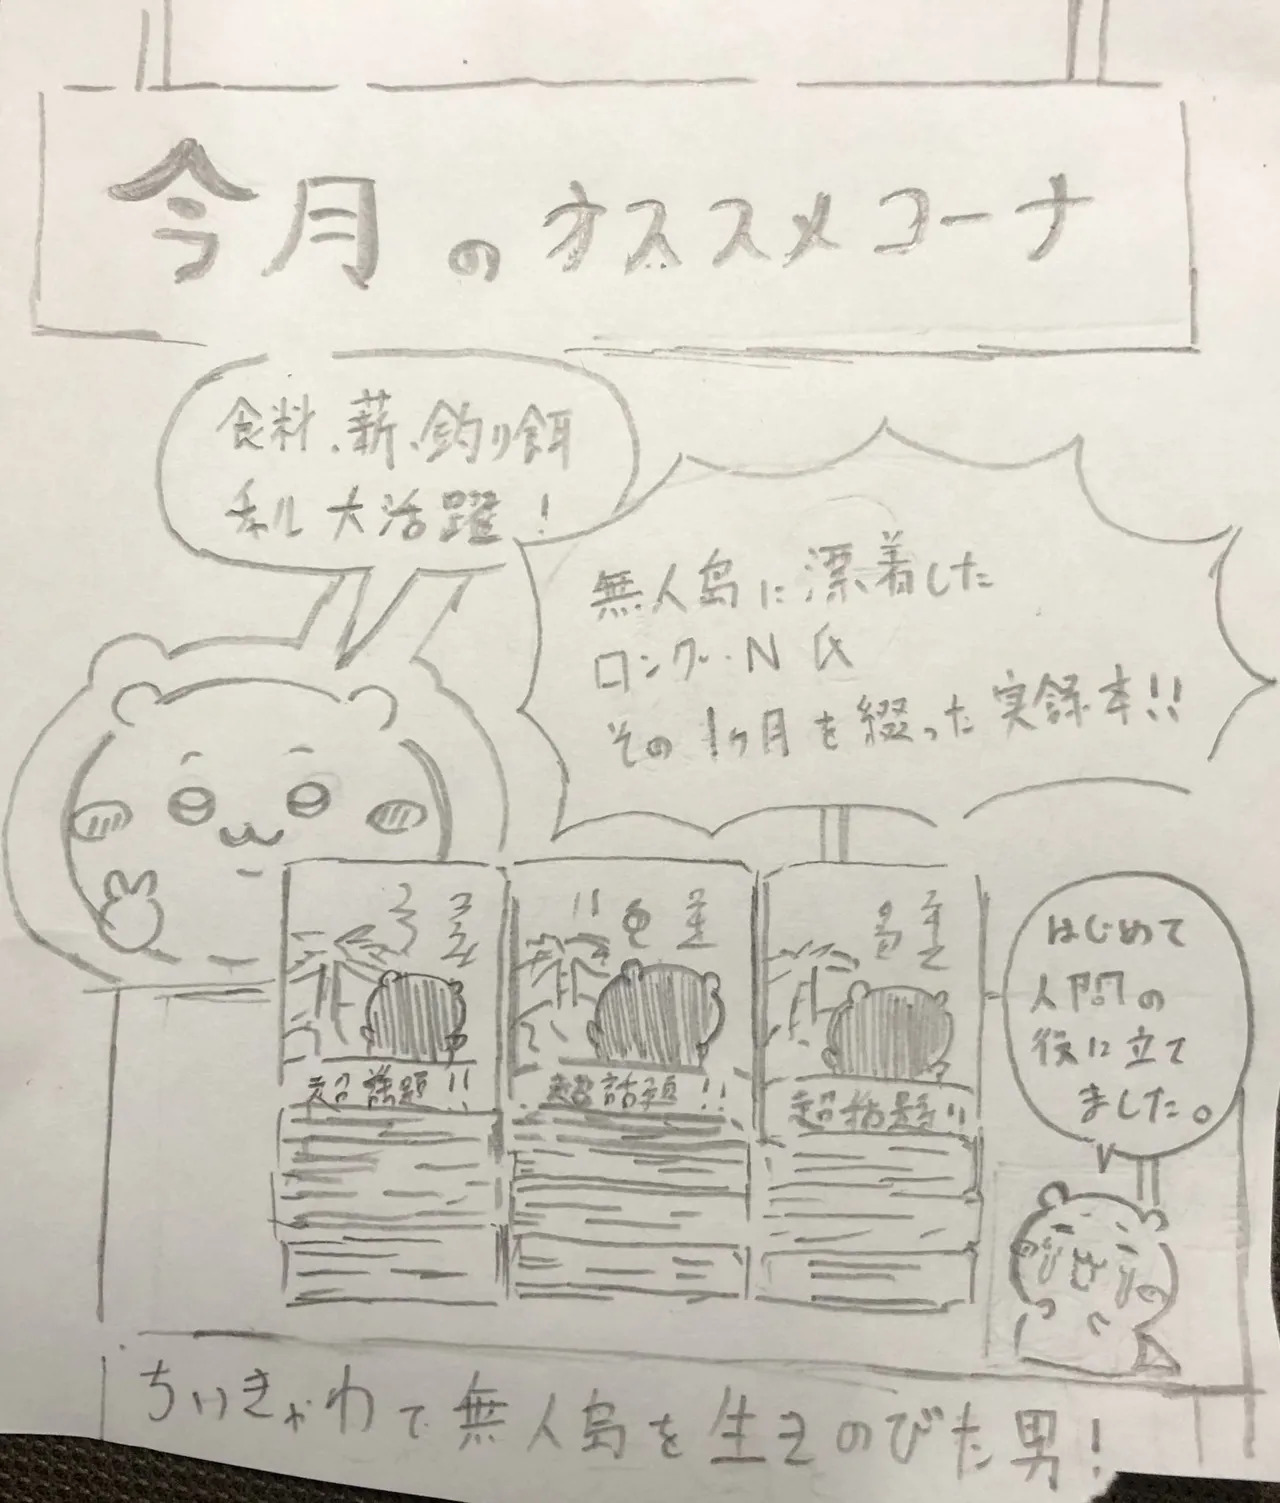 今月のオススメコーナ
食料、薪、釣り餌
チル大活躍!
無人島に漂着した
ロング・N氏
その1ヶ月を綴った実録本!!
超話題!!
超話題!!
超話題!!
はじめて
人間の
役に立て
ました。
ちいきゃわで無人島を生きのびた男!